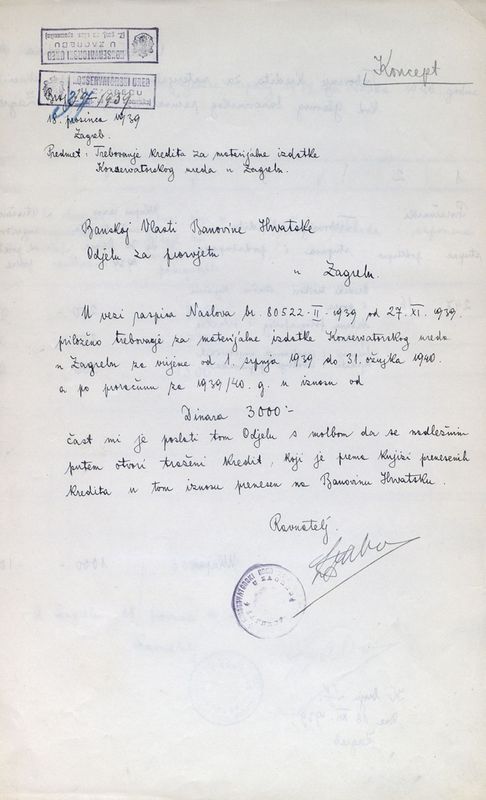 KONSERVATORSKI URED
U ZAGREBU
Koncept
KONSERVATORSKI URED
U ZAGREBU
Broj 1939
18. prosinca 1939
Zagreb.
Predmet: Trebovanje kredita za materijalne izdatke
Konzervatorskog ureda u Zagrebu.
Banskoj Vlasti Banovine Hrvatske
Odjelu za prosvjetu
u Zagrebu.
U vezi raspisa Naslova br. 80522-II-1939 od 27. XI. 1939.
priloženo trebovanje za materijalne izdatke Konzervatorskog ureda
u Zagrebu za vrijeme od 1. srpnja 1939 do 31. ožujka 1940.
a po proračunu za 1939/40. g. u iznosu od
Dinara 3000.-
čast mi je poslati tom Odjelu s molbom da se nadležnim
putem otvori traženi kredit, koji je prema knjizi prenesenih
kredita u tom iznosu prenesen na Banovinu Hrvatsku.
Ravnatelj.
Szabo